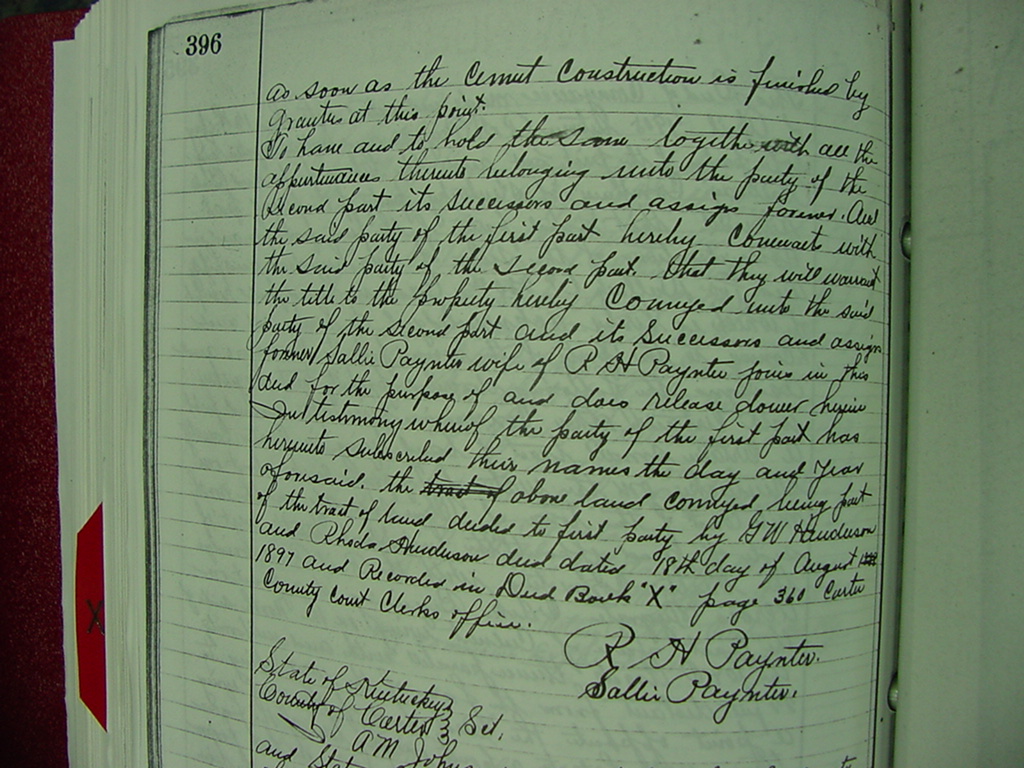 396
as soon as the Cemut Construction is finished by
Grantus at this point.
To have and to hold the same togethe with all the
appurtenances thereto belonging unto the party of the
Second part its successors and assign forever. And
the said party of the first part hereby Convenants with
the said party of the second part. that they will warrant
the title to the property hereby Conveyed unto the said
party of the second part and its Successors and assigns
forever Sallie Paynter wife of R H Paynter joins in this
deed for the purpose of and does release dower herein
In testimony whereof the party of the first part has
hereunto subscribed their names the day and year
aforesaid. the tract of above land conveyed being part
of the tract of land deeded to first party by G W Henderson
and Rhoda Henderson deed dated 18th day of August
1897 and Recorded in Deed Book "X" page 360 Carter
County Court Clerks office.
R H Paynter.
Sallie Paynter.
State of Kentucky
County of Carter } Sct.
A M John
and State